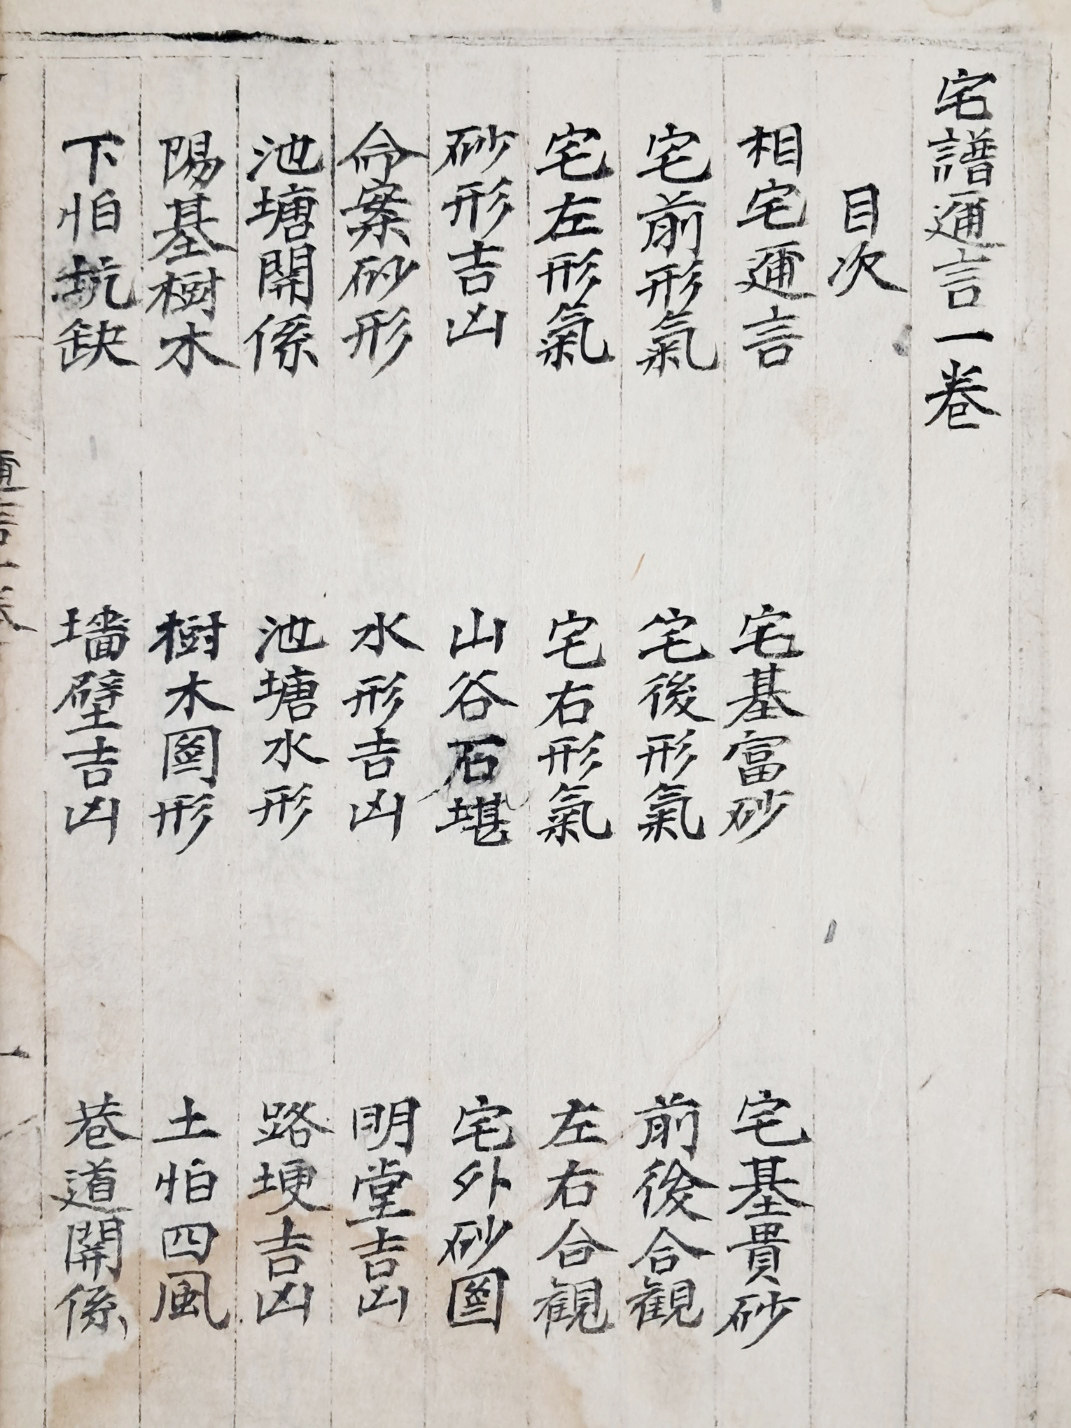 宅譜邇言一卷
目次
相宅邇言 宅基富砂 宅基貴砂
宅前形氣 宅後形氣 前後合観
宅左形氣 宅右形氣 左右合観
砂形吉凶 山谷石堪 宅外砂圖
命案砂形 水形吉凶 明堂吉凶
池塘開係 池塘水形 路埂吉凶
陽基樹木 樹木圖形 土怕四風
下怕坑缺 墻壁吉凶 巷道開係
邇言一卷
一